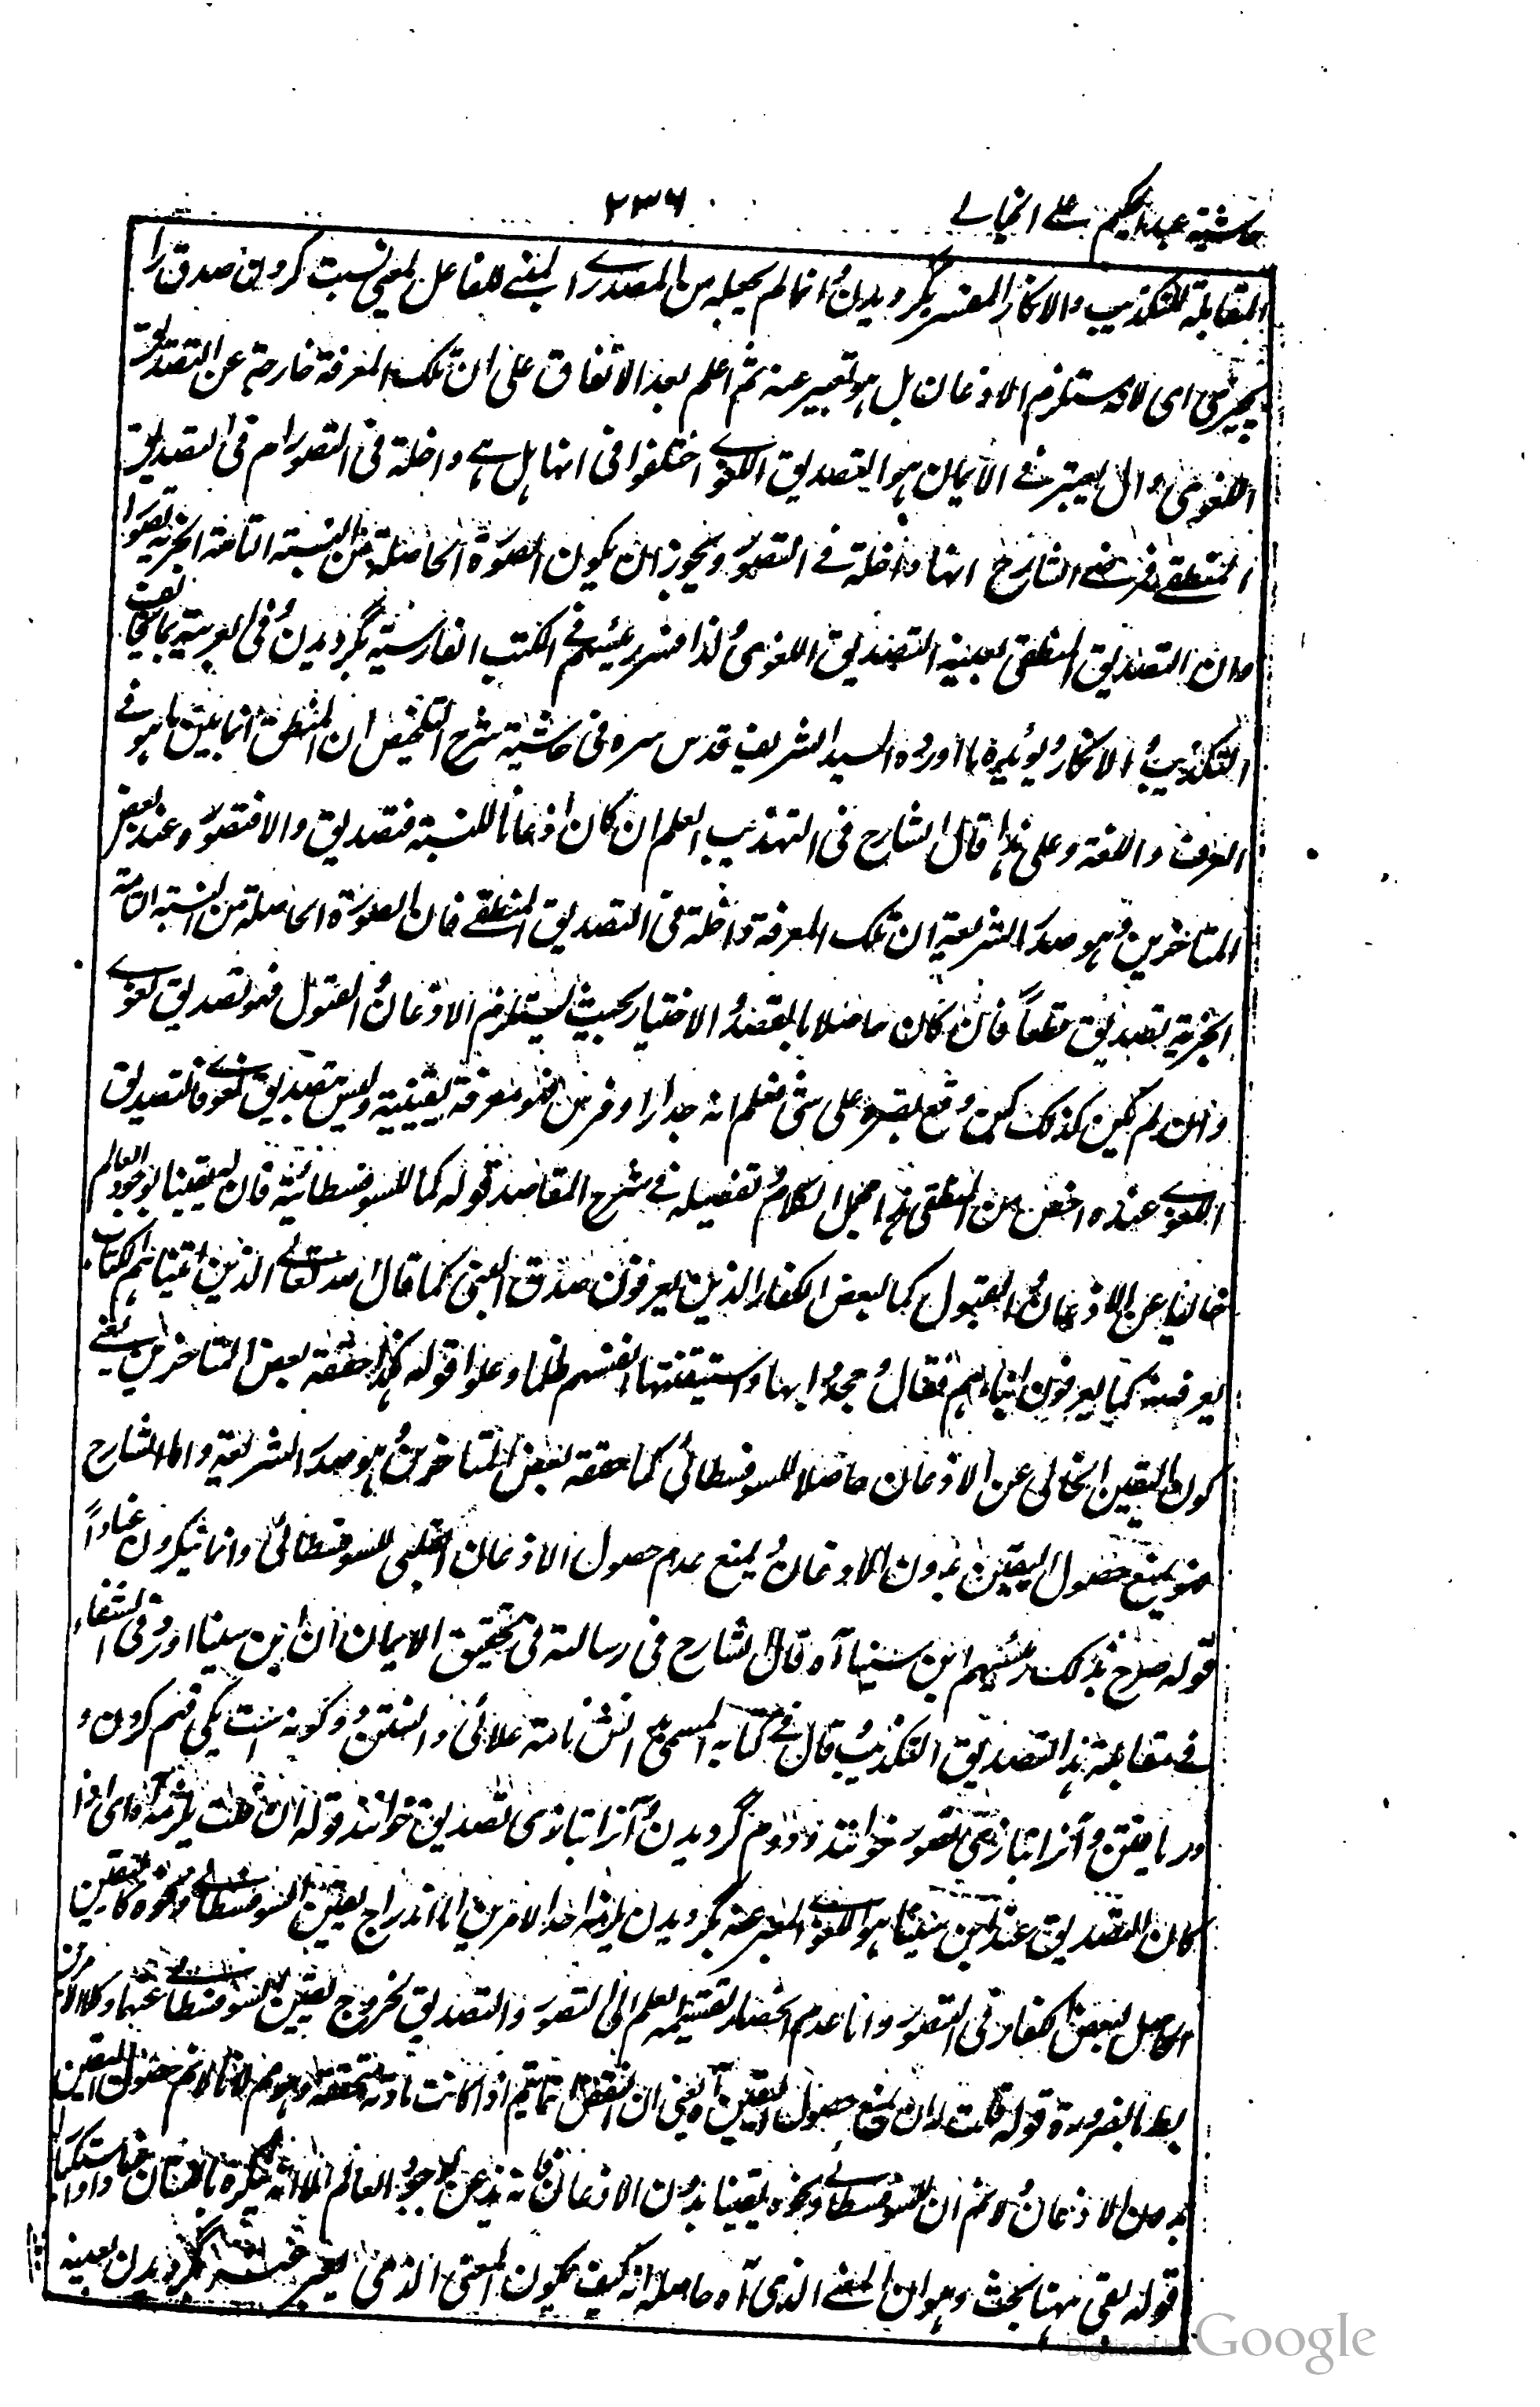 حاشية عبد الحكيم على الخيالي
٢٣٦
المقابلة للتكذيب والانكار المفسر بگرويدن وانما لم يجعله من المصدر المبني للفاعل بمعنى نسبت كردن صدق را
بچيزى اى لانه يستلزم الاذعان بل هو تعبير عنه ثم اعلم بعد الاتفاق على ان تلك المعرفة خارجة عن التصديق
اللغوى وان المعتبر فى الايمان هو التصديق اللغوى اختلفوا فى انها هل هى داخلة فى التصور ام فى التصديق
المنطقى فرضى الشارح انها داخلة فى التصور ويجوز ان يكون الصورة الحاصلة من النسبة التامة الخبرية تصورا
وان التصديق المنطقى بعينه التصديق اللغوى ولذا فسره رئيسهم فى الكتب الفارسية بگرويدن وفى العربية بما يخالف
التكذيب والانكار ويؤيده ما اورده السيد الشريف قدس سره فى حاشية شرح التلخيص ان المنطقى انما يبين ما هو فى
العرف واللغة وعلى هذا قال الشارح فى التهذيب العلم ان كان اذعانا للنسبة فتصديق والا فتصور وعند بعض
المتاخرين وهو صدر الشريعة ان تلك المعرفة داخلة فى التصديق المنطقى فان الصورة الحاصلة من النسبة التامة
الخبرية تصديق قطعاً فان كان حاصلا بالقصد والاختيار بحيث يستلزم الاذعان والقبول فهو تصديق لغوى
وان لم يكن كذلك كمن وقع بصره على شئ فعلم انه جدار او فرس فهو معرفة يقينية وليس بتصديق لغوى فالتصديق
اللغوى عنده اخص من المنطقى هذا مجمل الكلام وتفصيله فى شرح المقاصد قوله كما للسوفسطائية فان له يقينا بوجود العالم
خاليا عن الاذعان والقبول كما لبعض الكفار الذين يعرفون صدق النبى كما قال الله تعالى الذين اتيناهم الكتاب
يعرفونه كما يعرفون ابناءهم فقال وجحدوا بها واستيقنتها انفسهم ظلما وعلوا قوله كذا حققه بعض المتاخرين يعنى
كون اليقين الخالى عن الاذعان حاصلا للسوفسطائى كما حققه بعض المتاخرين وهو صدر الشريعة واما الشارح
فهو يمنع حصول اليقين بدون الاذعان ويمنع عدم حصول الاذعان القلبى للسوفسطائى وانما ينكرون عناداً
قوله صرح بذلك رئيسهم ابن سينا آه قال الشارح فى رسالته فى تحقيق الايمان ان ابن سينا اورد فى الشفاء
فى مقابلة هذا التصديق التكذيب وقال فى كتابه المسمى بدانش نامه علائى دانستن دو گونه است يكى فهم كردن و
دريافتن وآنرا بتازى تصور خوانند ودوم گرويدن وآنرا بتازى تصديق خوانند قوله ان قلت يلزمه آه اى اذا
كان التصديق عند ابن سينا هو اللغوى المعبر عنه بگرويدن يلزمه احد الامرين اما اندراج يقين السوفسطائى ونحوه كاليقين
الحاصل لبعض الكفار فى التصور واما عدم انحصار تقسيمه العلم الى التصور والتصديق لخروج يقين السوفسطائى عنهما وكلا الامرين
بط بالضرورة قوله قلت له ان يمنع حصول اليقين آه يعنى ان النقض انما يتم اذا كانت مادته متحققة وهو مم لانا لا نم حصول اليقين
بدون الاذعان ولا نم ان للسوفسطائى ونحوه يقينا بدون الاذعان فانه يذعن بوجود العالم الا انه ينكره باللسان عنادا واستكبارا
قوله بقى ههنا بحث وهو ان المعنى الذى آه حاصله انه كيف يكون المعنى الذى يعبر عنه بگرويدن بعينه
Digitized by Google